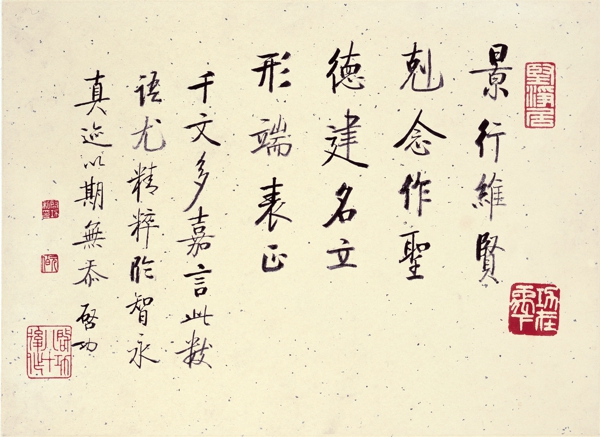 堅淨居
景行維賢
剋念作聖
德建名立
形端表正
千文多嘉言此數
語尤精粹臨智永
真迹以期無忝 啓功
功在禹下